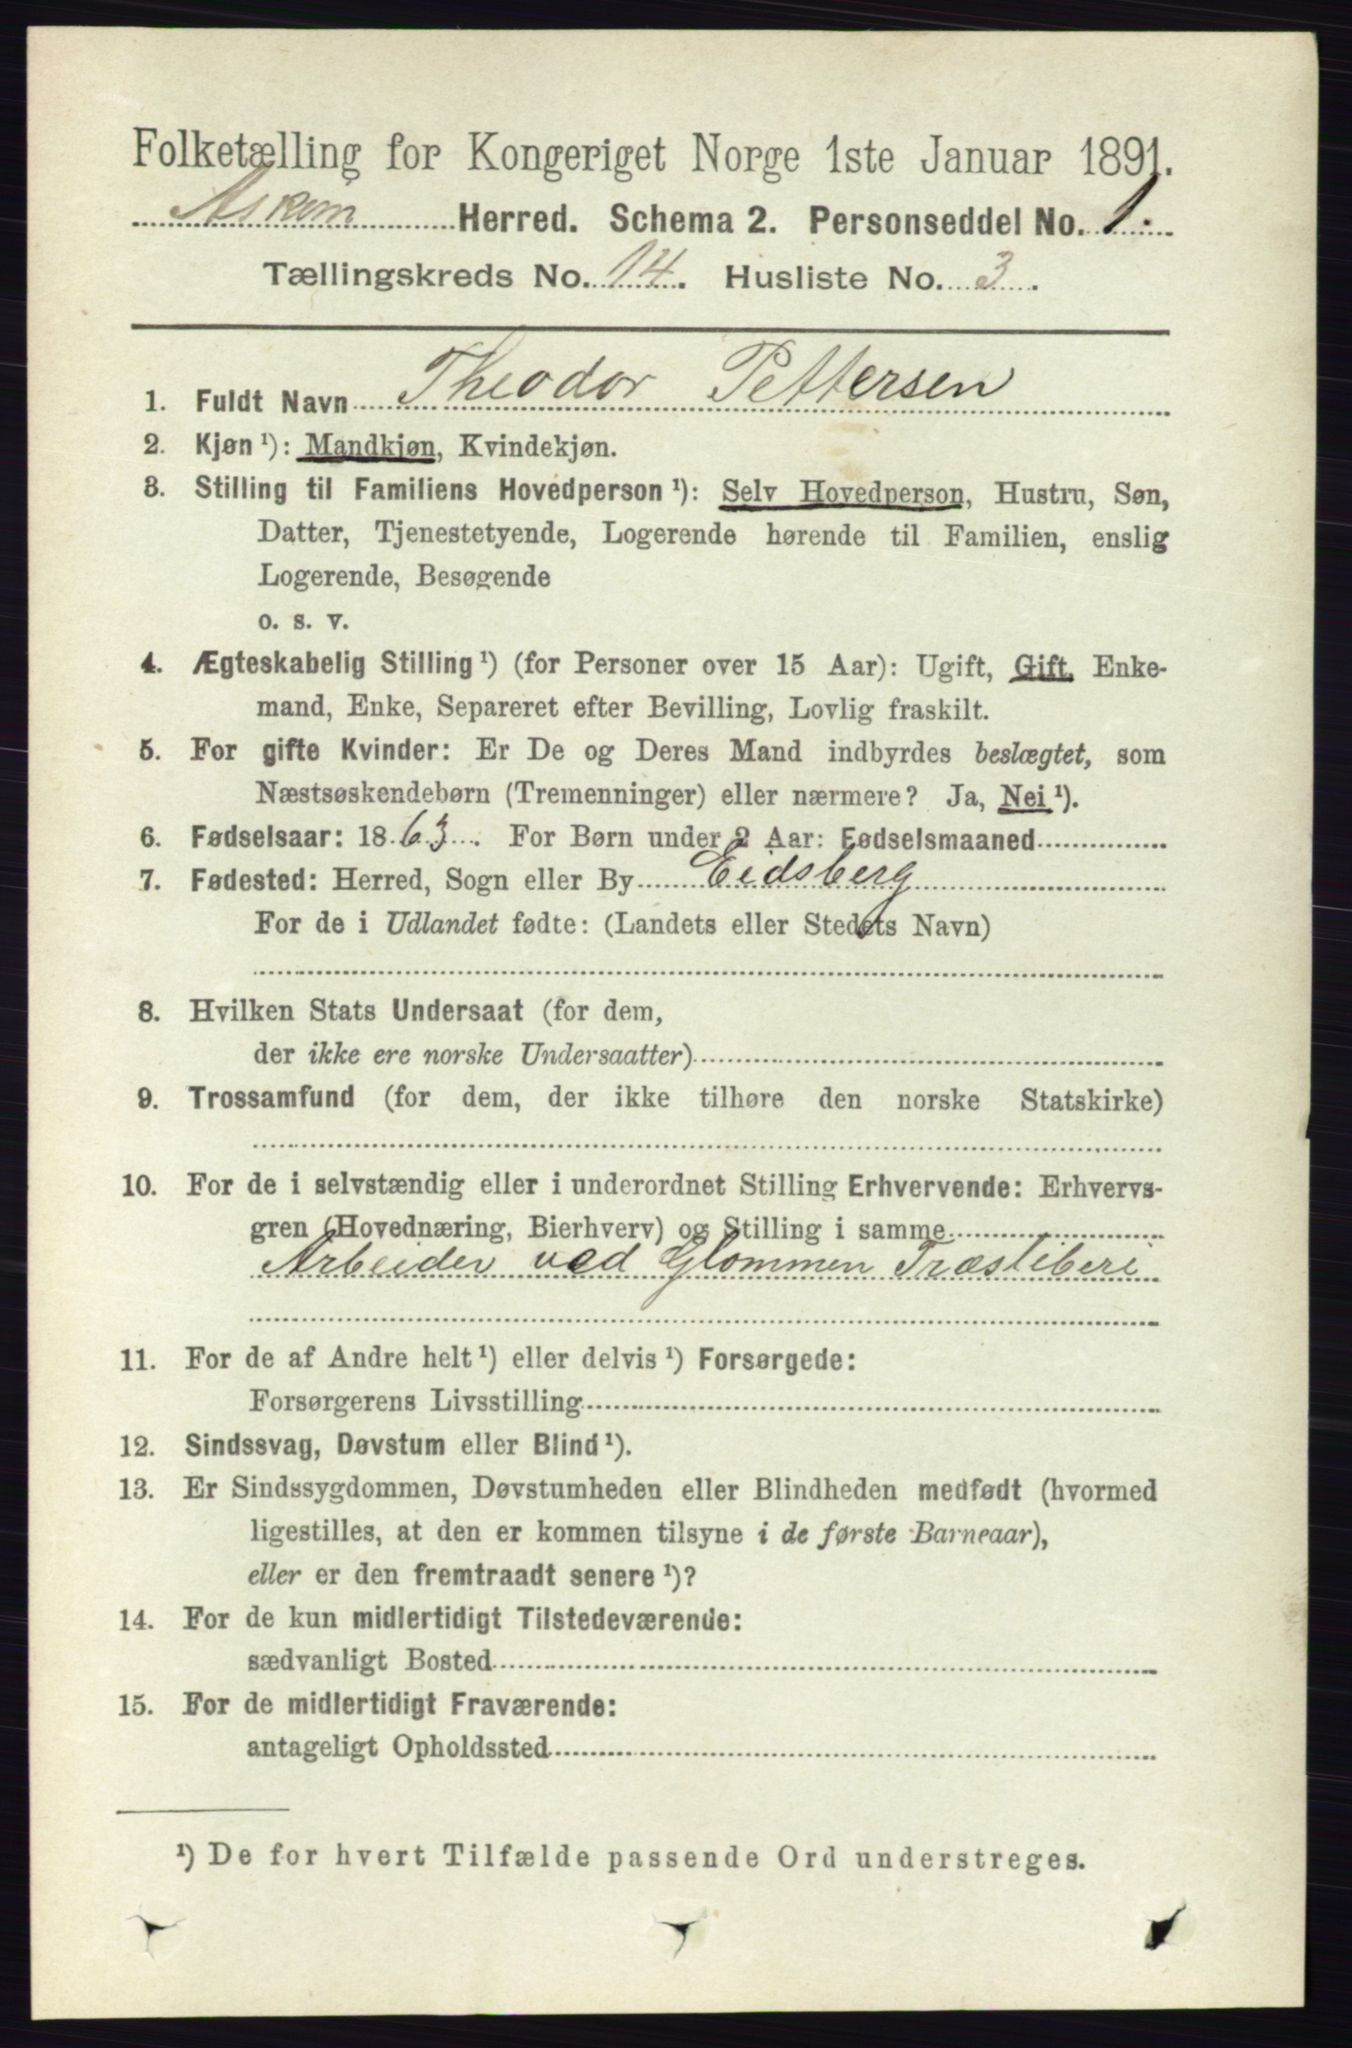 Folketælling for Kongeriget Norge 1ste Januar 1891.
Askim Herred. Schema 2. Personseddel No. 1.
Tællingskreds No. 14. Husliste No. 3.
1. Fuldt Navn Theodor Pettersen
2. Kjøn ¹): Mandkjøn, Kvindekjøn.
3. Stilling til Familiens Hovedperson ¹): Selv Hovedperson, Hustru, Søn,
Datter, Tjenestetyende, Logerende hørende til Familien, enslig
Logerende, Besøgende
o. s. v.
4. Ægteskabelig Stilling ¹) (for Personer over 15 Aar): Ugift, Gift, Enke-
mand, Enke, Separeret efter Bevilling, Lovlig fraskilt.
5. For gifte Kvinder: Er De og Deres Mand indbyrdes beslægtet, som
Næstsøskendebørn (Tremenninger) eller nærmere? Ja, Nei ¹).
6. Fødselsaar: 1863. For Børn under 2 Aar: Fødselsmaaned
7. Fødested: Herred, Sogn eller By Eidsberg
For de i Udlandet fødte: (Landets eller Stedets Navn)
8. Hvilken Stats Undersaat (for dem,
der ikke ere norske Undersaatter)
9. Trossamfund (for dem, der ikke tilhøre den norske Statskirke)
10. For de i selvstændig eller i underordnet Stilling Erhvervende: Erhvervs-
gren (Hovednæring, Bierhverv) og Stilling i samme
Arbeider ved Glommen Træsliberi
11. For de af Andre helt ¹) eller delvis ¹) Forsørgede:
Forsørgerens Livsstilling
12. Sindssvag, Døvstum eller Blind ¹).
13. Er Sindssygdommen, Døvstumheden eller Blindheden medfødt (hvormed
ligestilles, at den er kommen tilsyne i de første Barneaar),
eller er den fremtraadt senere ¹)?
14. For de kun midlertidigt Tilstedeværende:
sædvanligt Bosted
15. For de midlertidigt Fraværende:
antageligt Opholdssted
¹) De for hvert Tilfælde passende Ord understreges.